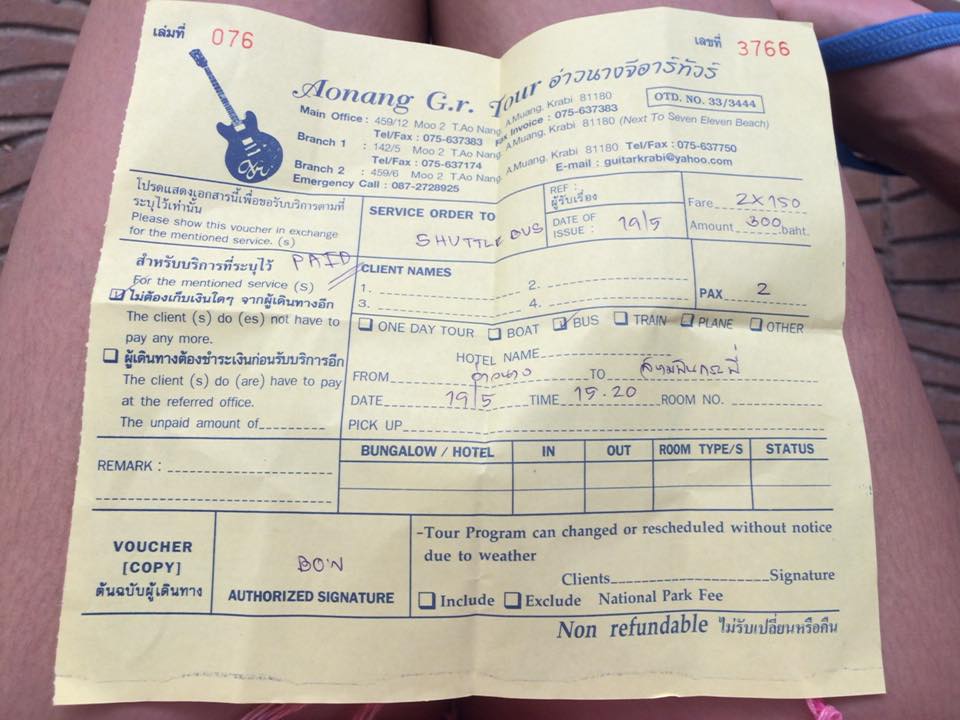 เล่มที่ 076
เลขที่ 3766
Aonang G.r. Tour อ่าวนางจีอาร์ทัวร์
Main Office : 459/12 Moo 2 T.Ao Nang A.Muang, Krabi 81180
Tel/Fax : 075-637383 Fax Invoice : 075-637383
OTD. NO. 33/3444
Branch 1 : 142/5 Moo 2 T.Ao Nang A.Muang, Krabi 81180 (Next To Seven Eleven Beach)
Tel/Fax : 075-637174
Branch 2 : 459/6 Moo 2 T.Ao Nang A.Muang, Krabi 81180 Tel/Fax : 075-637750
Emergency Call : 087-2728925 E-mail : guitarkrabi@yahoo.com
โปรดแสดงเอกสารนี้เพื่อขอรับบริการตามที่
ระบุไว้เท่านั้น
Please show this voucher in exchange
for the mentioned service. (s)
SERVICE ORDER TO
SHUTTLE BUS
REF :
ผู้รับเรื่อง
DATE OF
ISSUE : 19/5
Fare 2X150
Amount 300 baht.
สำหรับบริการที่ระบุไว้ PAID
For the mentioned service (s)
ไม่ต้องเก็บเงินใดๆ จากผู้เดินทางอีก
The client (s) do (es) not have to
pay any more.
ผู้เดินทางต้องชำระเงินก่อนรับบริการอีก
The client (s) do (are) have to pay
at the referred office.
The unpaid amount of
CLIENT NAMES
1. 2.
3. 4.
PAX 2
ONE DAY TOUR BOAT BUS TRAIN PLANE OTHER
HOTEL NAME
FROM อ่าวนาง TO สนามบินกระบี่
DATE 19/5 TIME 15.20 ROOM NO.
PICK UP
REMARK :
BUNGALOW / HOTEL IN OUT ROOM TYPE/S STATUS
VOUCHER
[COPY]
ต้นฉบับผู้เดินทาง
BO'N
AUTHORIZED SIGNATURE
-Tour Program can changed or rescheduled without notice
due to weather
Clients Signature
Include Exclude National Park Fee
Non refundable ไม่รับเปลี่ยนหรือคืน